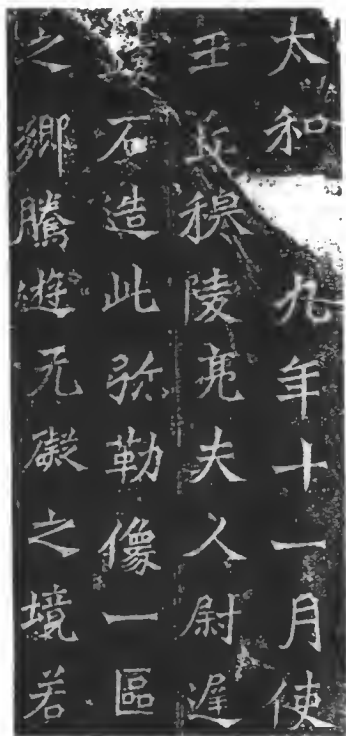 太和九年十一月使
王丘穆陵亮夫人尉遲
石造此弥勒像一區
之鄉騰遊无礙之境若